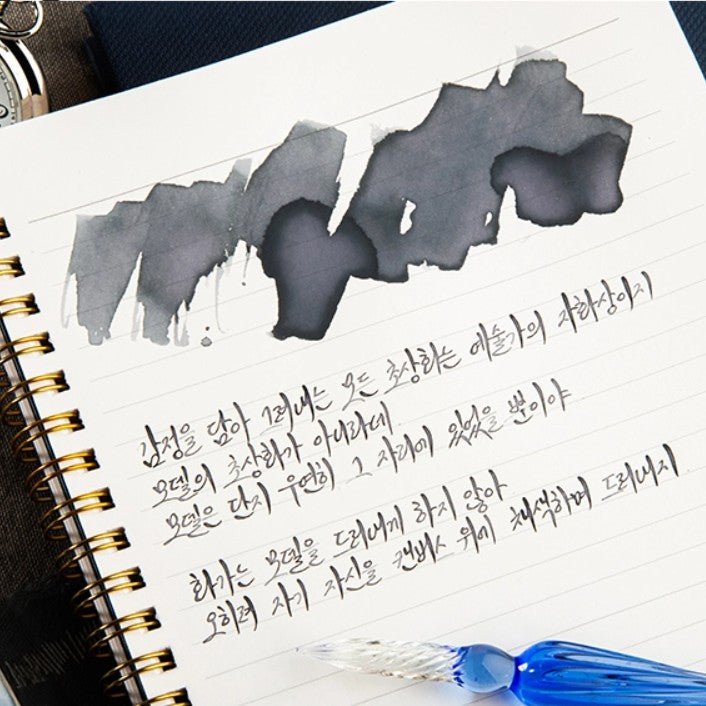 감정을 담아 그려내는 모든 초상화는 예술가의 자화상이지
모델의 초상화가 아니라네.
모델은 단지 우연히 그 자리에 있었을 뿐이야.
화가는 모델을 드러내게 하지 않아
오히려 자기 자신을 캔버스 위에 채색하며 드러내지.